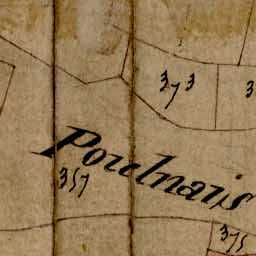 373
3
Pouelnais
357
375